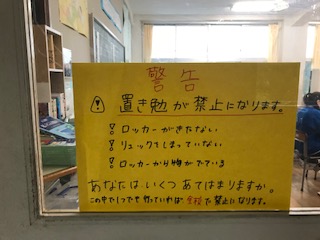 警告
置き勉が禁止になります。
ロッカーがきたない
リュックをしまっていない
ロッカーから物がでている
あなたはいくつあてはまりますか。
この中で1つでも
ていれば、全校で禁止になります。